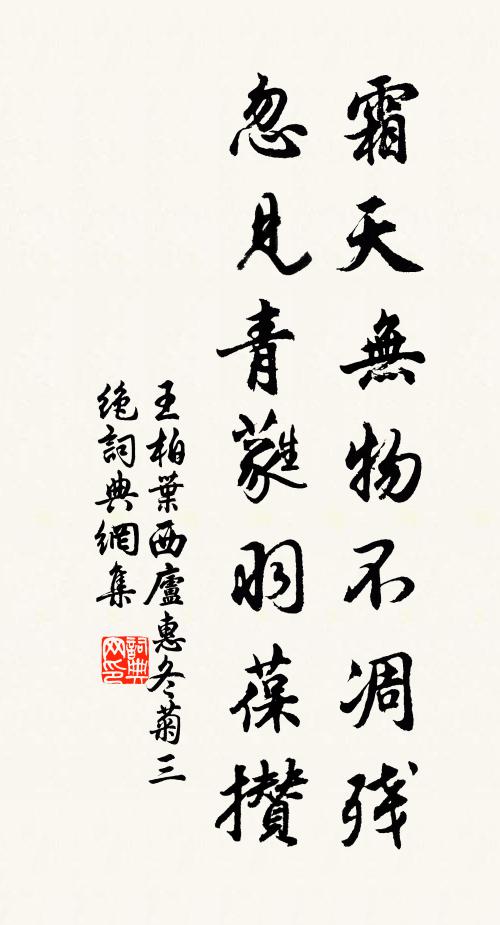 霜天無物不凋残
忽見青蕤羽葆攢
王柏葉西廬惠冬菊三
绝詞典網集
詞典网印